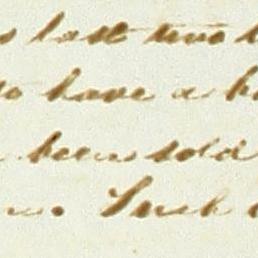 last two
to have a
been sold
Such